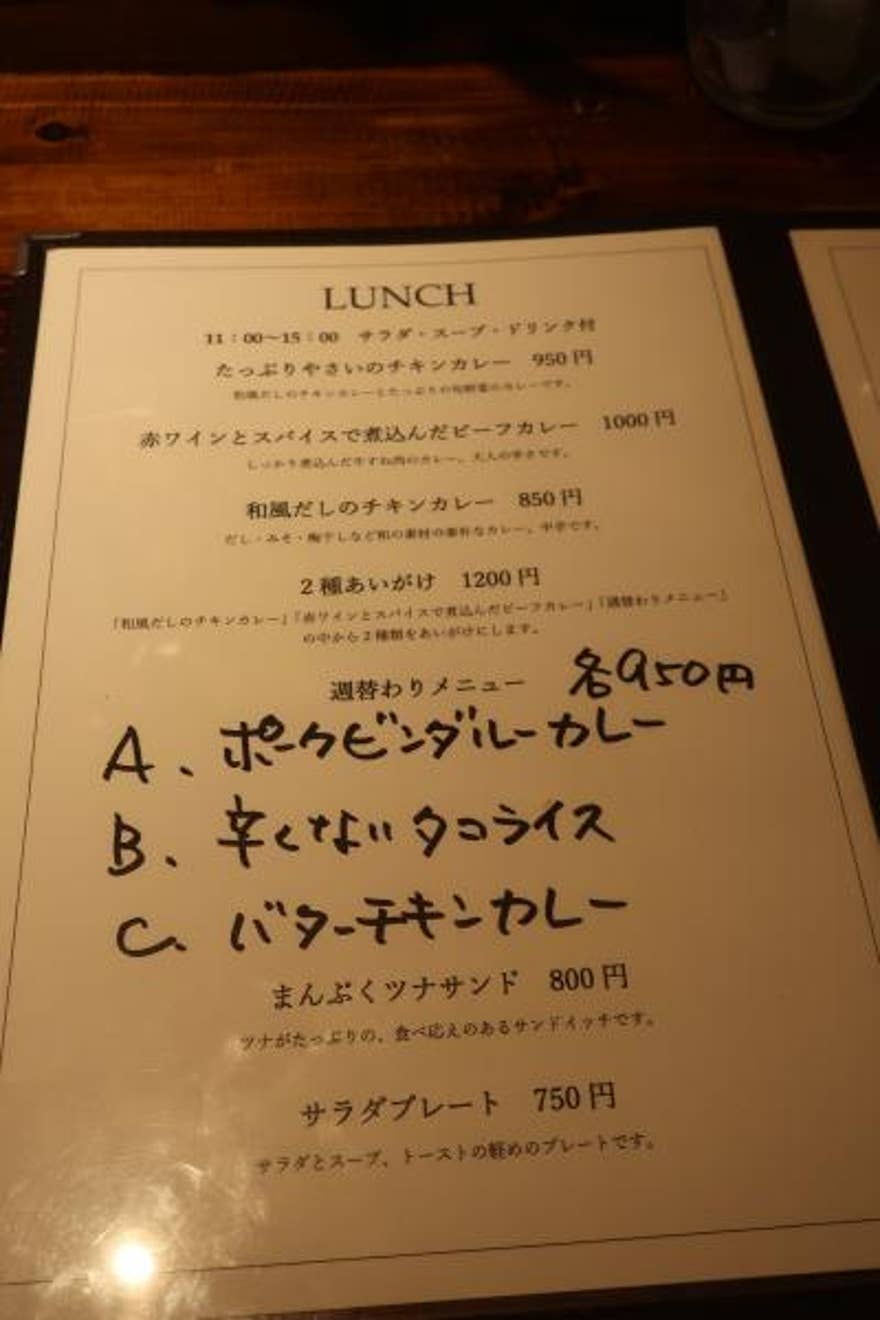 LUNCH
11:00〜15:00　サラダ・スープ・ドリンク付
たっぷりやさいのチキンカレー　950円
和風だしのチキンカレーとたっぷりの旬野菜のカレーです。
赤ワインとスパイスで煮込んだビーフカレー　1000円
しっかり煮込んだ牛すね肉のカレー。大人の辛さです。
和風だしのチキンカレー　850円
だし・みそ・梅干しなど和の素材の素朴なカレー。中辛です。
2種あいがけ　1200円
「和風だしのチキンカレー」「赤ワインとスパイスで煮込んだビーフカレー」「週替わりメニュー」
の中から2種類をあいがけにします。
週替わりメニュー　各950円
A、ポークビンダルーカレー
B、辛くないタコライス
C、バターチキンカレー
まんぷくツナサンド　800円
ツナがたっぷりの、食べ応えのあるサンドイッチです。
サラダプレート　750円
サラダとスープ、トーストの軽めのプレートです。